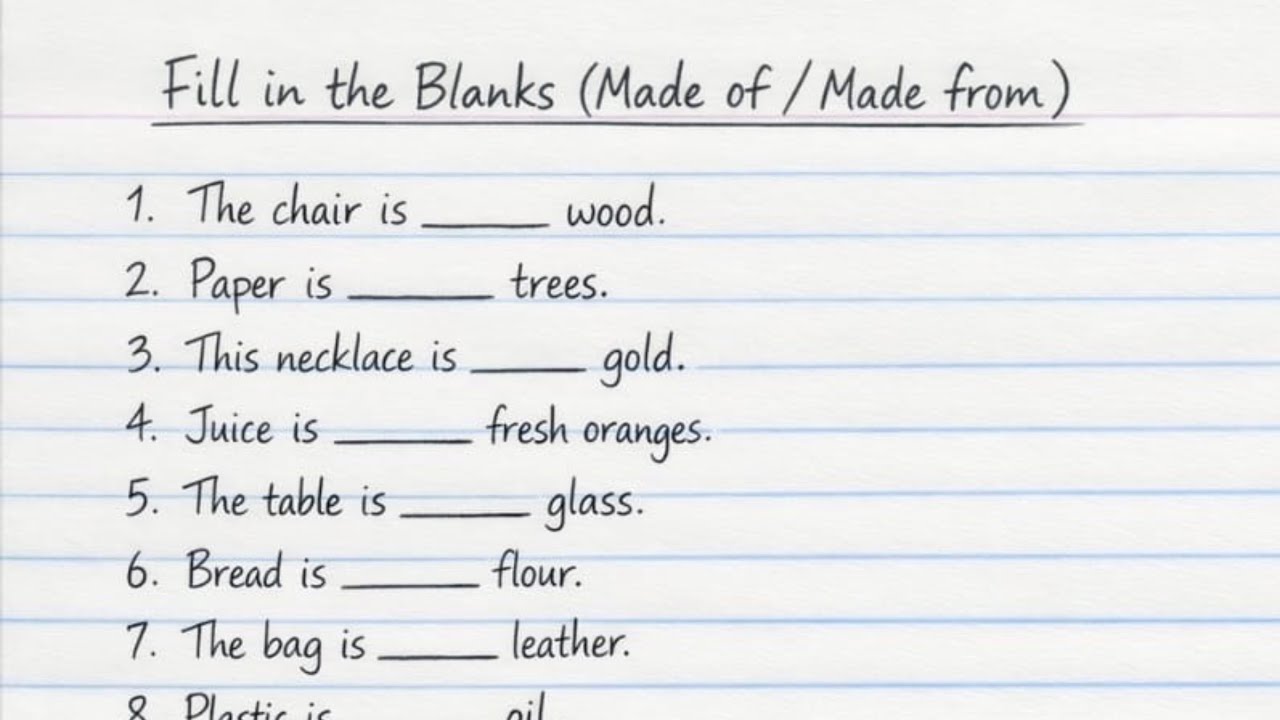 Fill in the Blanks (Made of / Made from)
1. The chair is ______ wood.
2. Paper is ______ trees.
3. This necklace is ______ gold.
4. Juice is ______ fresh oranges.
5. The table is ______ glass.
6. Bread is ______ flour.
7. The bag is ______ leather.
8. Plastic is ______ oil